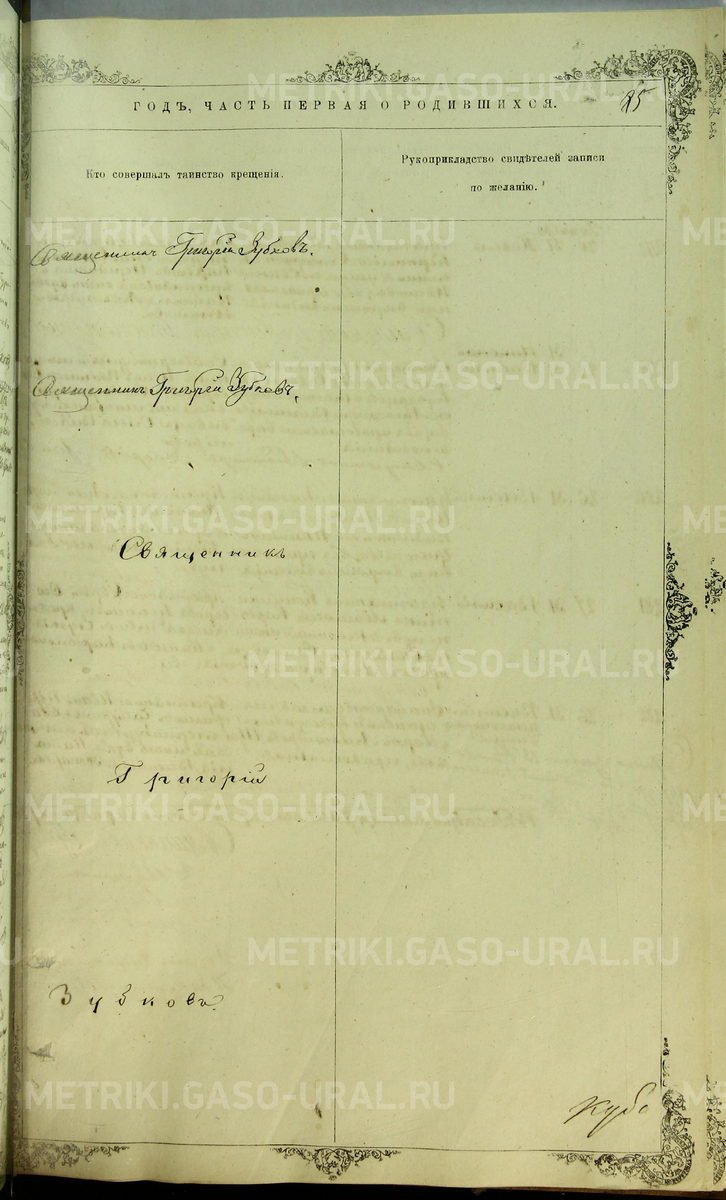 ГОДЪ, ЧАСТЬ ПЕРВАЯ О РОДИВШИХСЯ.
25
Кто совершалъ таинство крещенія.
Рукоприкладство свидѣтелей записи
по желанію.
Священникъ Григорій Зубковъ.
Священникъ Григорій Зубковъ.
Священникъ
Григорій
Зубковъ
METRIKI.GASO-URAL.RU
METRIKI.GASO-URAL.RU
METRIKI.GASO-URAL.RU
METRIKI.GASO-URAL.RU
METRIKI.GASO-URAL.RU
METRIKI.GASO-URAL.RU
METRIKI.GASO-URAL.RU
METRIKI.GASO-URAL.RU